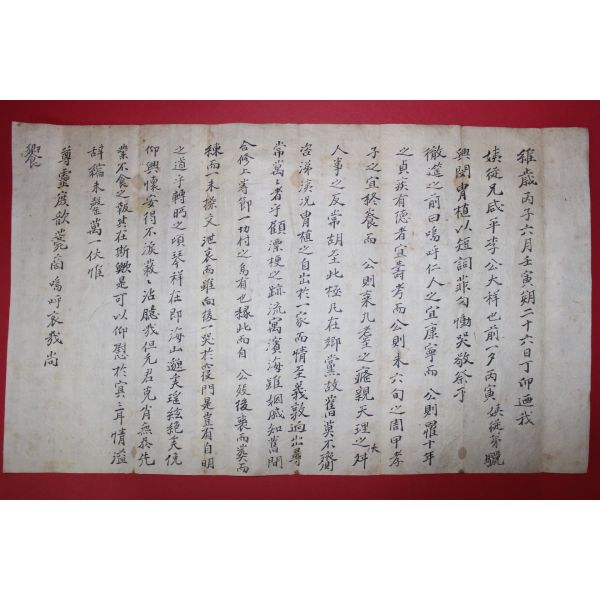 維歲丙子六月壬寅朔二十六日丁卯迺我
姨從兄咸平李公大祥也前一夕丙寅姨從弟驪
興閔胄植以短詞菲句慟哭敬祭于
徹筵之前曰嗚呼仁人之宜康寧而 公則罹十年
之貞疾有德者宜壽考而公則未六旬之周甲孝
子之宜終養而 公則棄九耋之癃親天理之舛
人事之反常胡至此極凡在鄉黨故舊莫不齎
咨涕洟况胄植之自出於一家而情至義敦逈出尋
常萬萬者乎顧漂梗之跡流寓濱海雖姻戚知舊間
合修上書節一切付之烏有也緣此而自 公歿後喪而葬而
練而一未操文泄哀而雖向後一哭於門是豈有自明
之道乎轉眄之頃琴祥在即海山邈矣瑤絃絶矣俛
仰興懷安得不淚簌簌沾臆我但允君克肖無忝先
業不食之報其在斯歟是可以仰慰於冥冥耶情溢
辭縮未罄萬一伏惟
尊靈庶歆菲薦嗚呼哀哉尚
饗